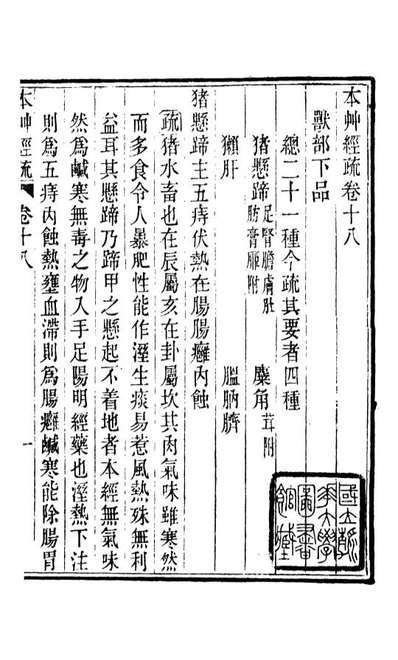 本艸經疏卷十八
獸部下品
總二十一種今疏其要者四種
猪懸蹄足腎膽膚肚肪膏𦡱附　麋角茸附
獺肝　膃肭臍
猪懸蹄主五痔伏熱在腸腸癰內蝕
疏猪水畜也在辰屬亥在卦屬坎其肉氣味雖寒然
而多食令人暴肥性能作溼生痰易惹風熱殊無利
益耳其懸蹄乃蹄甲之懸起不着地者本經無氣味
然爲鹹寒無毒之物入手足陽明經藥也溼熱下注
則爲五痔內蝕熱壅血滯則爲腸癰鹹寒能除腸胃
本艸經疏　卷十八　一
國立浙江大學圖書館藏